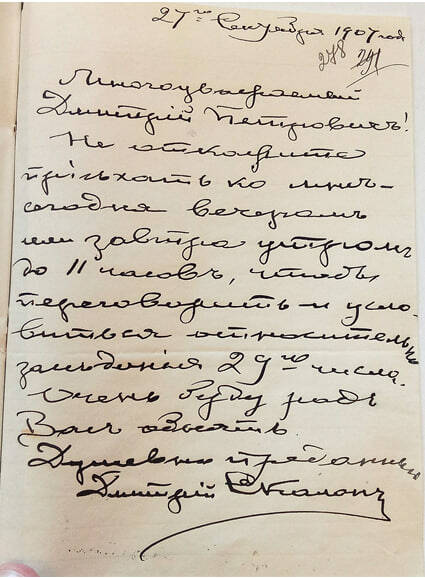 27го Сентября 1907 года
278 291
Многоуважаемый
Дмитрій Петровичъ!
Не откажите
пріѣхать ко мнѣ
сегодня вечеромъ
или завтра утромъ
до 11 часовъ, чтобы
переговорить и усло-
виться относительно
засѣданія 29го числа.
Очень буду радъ
Васъ обнять
Душевно преданный
Дмитрій Скалонъ